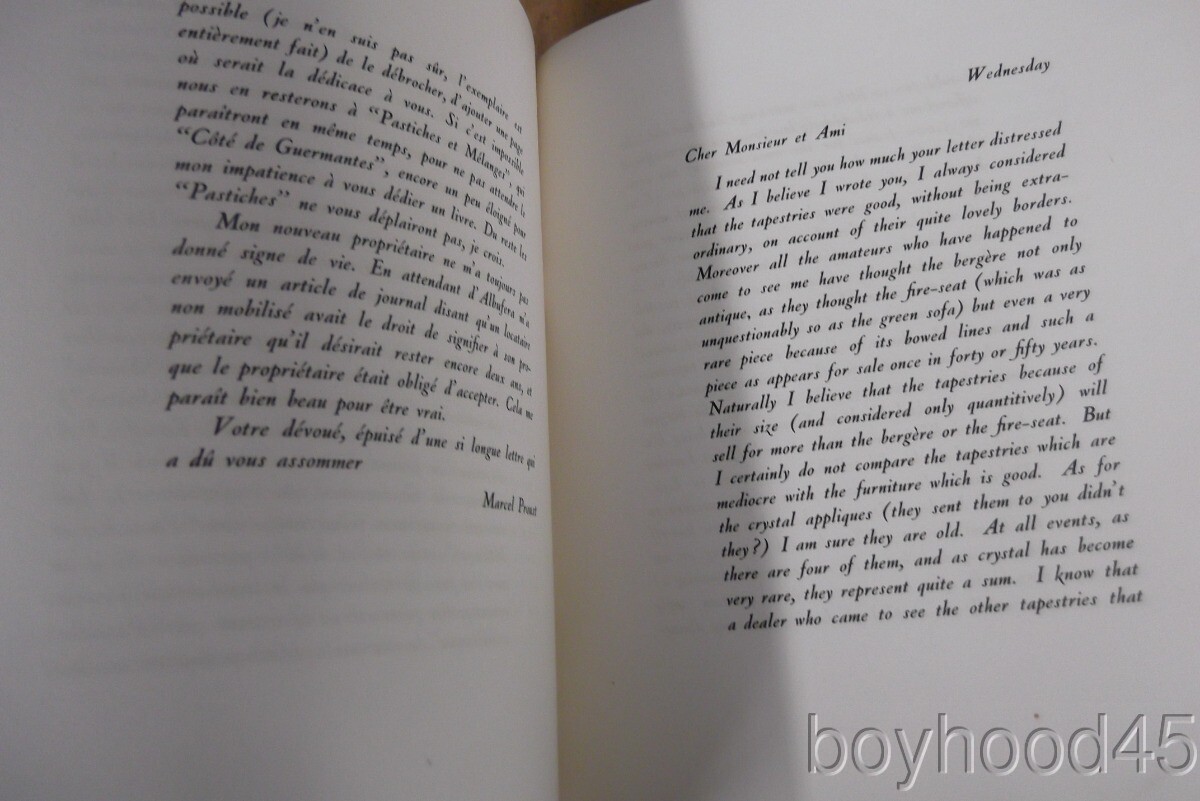 possible (je n'en suis pas sûr, l'exemplaire est
entièrement fait) de le débrocher, d'ajouter une page
où serait la dédicace à vous. Si c'est impossible
nous en resterons à "Pastiches et Mélanges", qui
paraîtront en même temps, pour ne pas attendre le
"Côté de Guermantes", encore un peu éloigné pour
mon impatience à vous dédier un livre. Du reste les
"Pastiches" ne vous déplairont pas, je crois.
Mon nouveau propriétaire ne m'a toujours pas
donné signe de vie. En attendant d'Albufera m'a
envoyé un article de journal disant qu'un locataire
non mobilisé avait le droit de signifier à son pro-
priétaire qu'il désirait rester encore deux ans, et
que le propriétaire était obligé d'accepter. Cela me
paraît bien beau pour être vrai.
Votre dévoué, épuisé d'une si longue lettre qui
a dû vous assommer
Marcel Proust
Wednesday
Cher Monsieur et Ami
I need not tell you how much your letter distressed
me. As I believe I wrote you, I always considered
that the tapestries were good, without being extra-
ordinary, on account of their quite lovely borders.
Moreover all the amateurs who have happened to
come to see me have thought the bergère not only
antique, as they thought the fire-seat (which was as
unquestionably so as the green sofa) but even a very
rare piece because of its bowed lines and such a
piece as appears for sale once in forty or fifty years.
Naturally I believe that the tapestries because of
their size (and considered only quantitively) will
sell for more than the bergère or the fire-seat. But
I certainly do not compare the tapestries which are
mediocre with the furniture which is good. As for
the crystal appliques (they sent them to you didn't
they?) I am sure they are old. At all events, as
there are four of them, and as crystal has become
very rare, they represent quite a sum. I know that
a dealer who came to see the other tapestries that
boyhood45